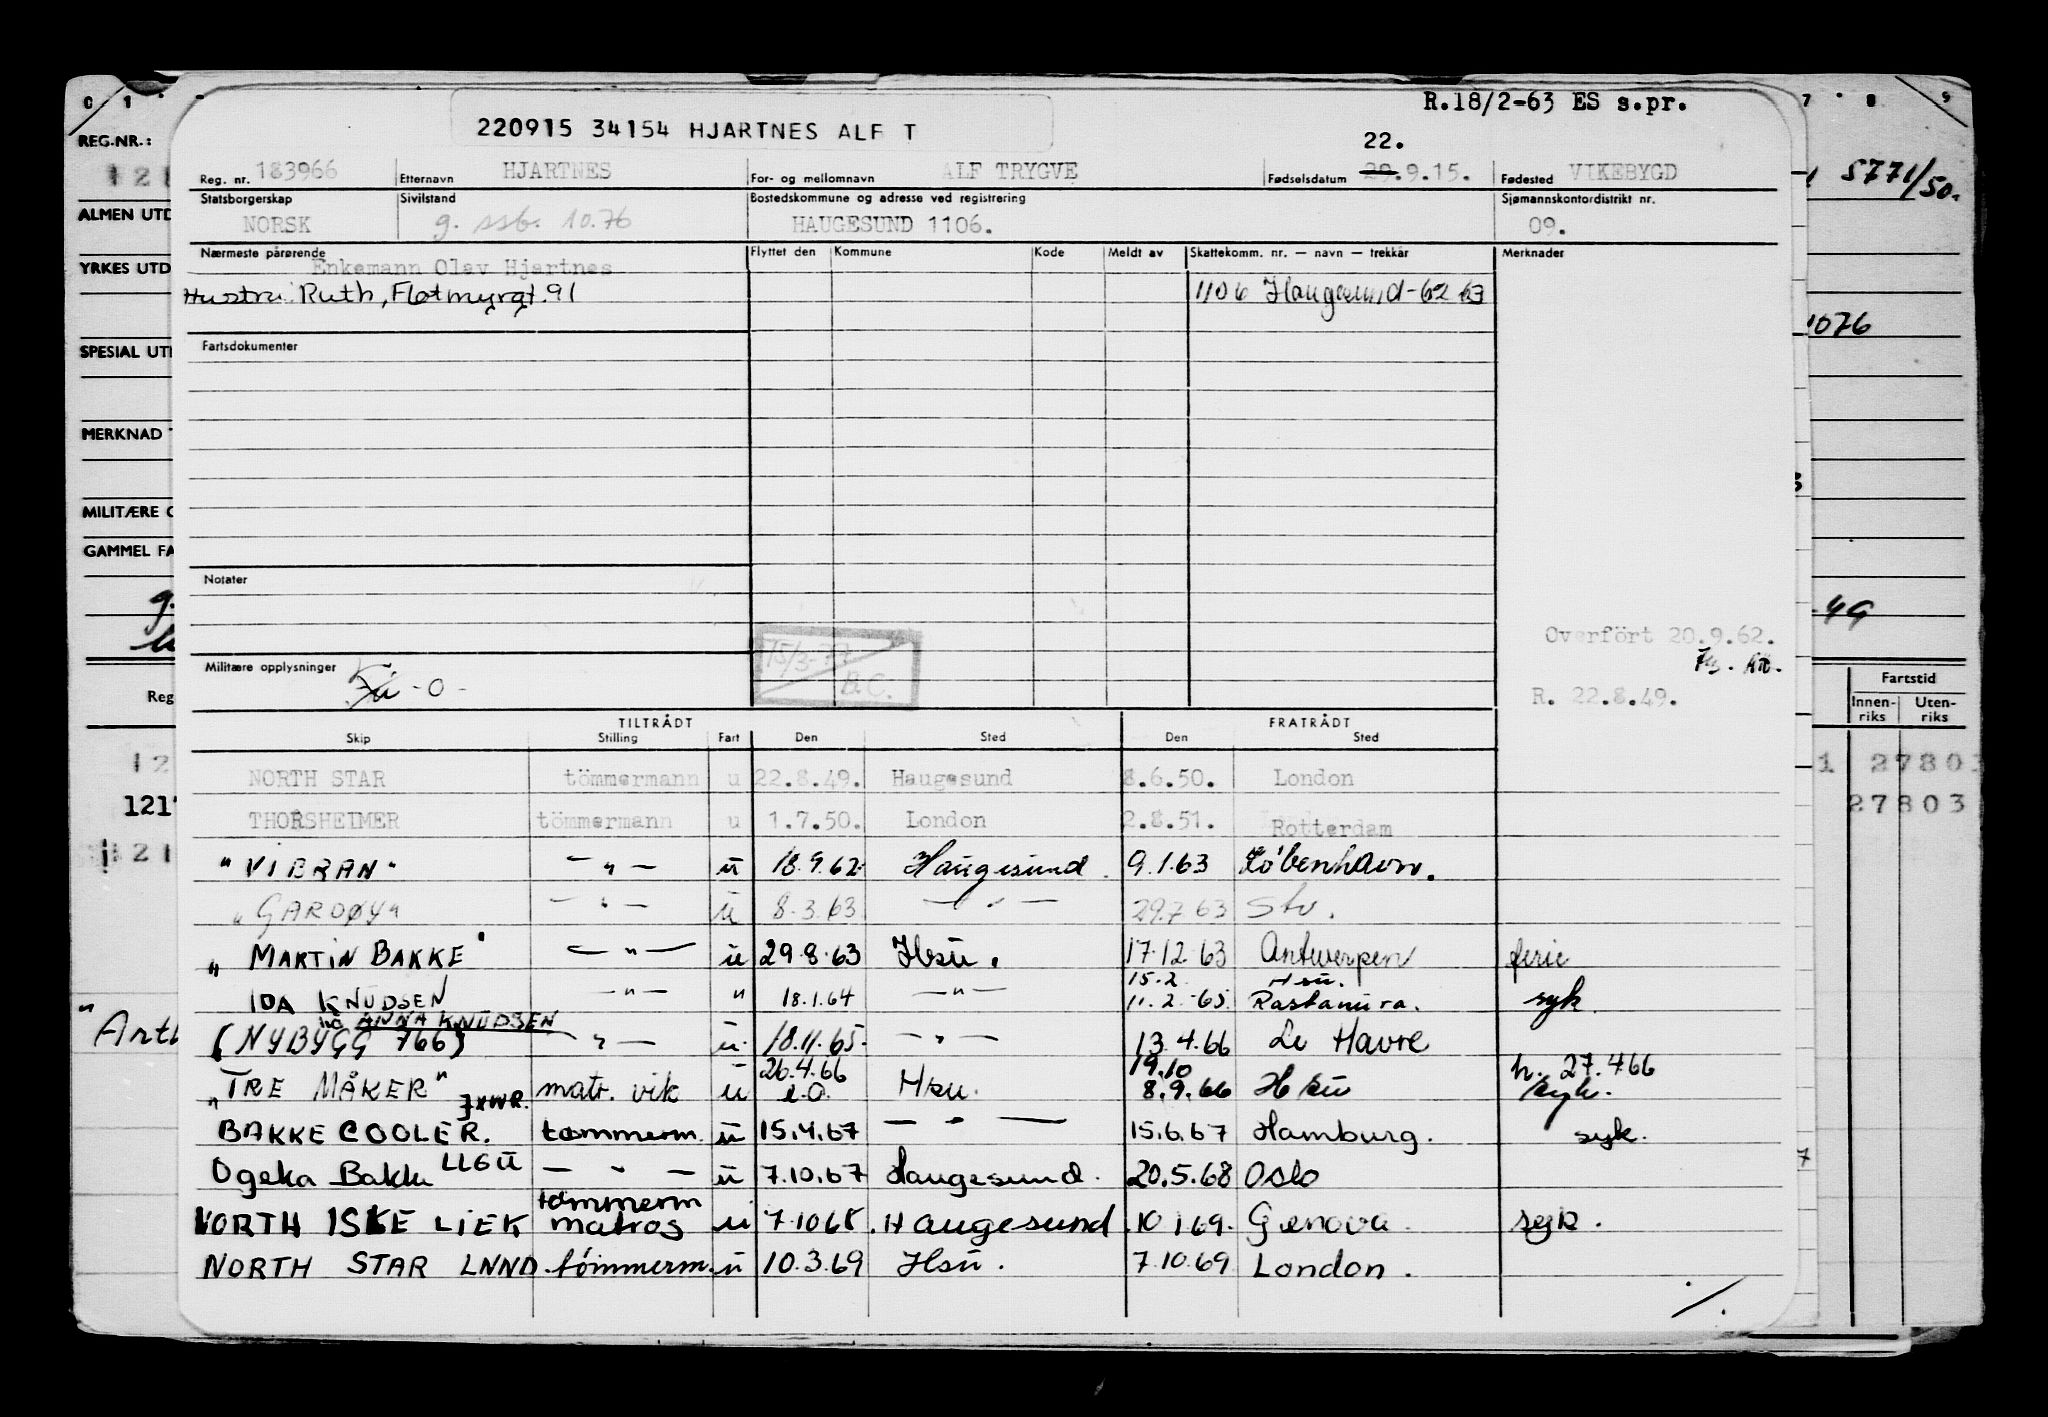 R.18/2-63 ES s.pr.
220915 34154 HJARTNES ALF T
22.
Reg. nr. 183966 Etternavn HJARTNES For- og mellomnavn ALF TRYGVE Fødselsdatum 29.9.15. Fødested VIKEBYGD
Statsborgerskap Sivilstand Bostedskommune og adresse ved registrering Sjømannskontordistrikt nr.
NORSK g. ssb. 10.76 HAUGESUND 1106. 09.
Nærmeste pårørende Flyttet den Kommune Kode Meldt av Skattekomm. nr. — navn — trekkår Merknader
Enkemann Olav Hjartnes
Hustru Ruth, Flotmyrgt. 91 1106 Haugesund-62 63
Fartsdokumenter
Notater
Overfört 20.9.62.
Militære opplysninger - 0 - 15/3-77 B.C.
R. 22.8.49.
TILTRÅDT FRATRÅDT
Skip Stilling Fart Den Sted Den Sted
NORTH STAR tömmermann u 22.8.49. Haugesund 8.6.50. London
THORSHEIMER tömmermann u 1.7.50. London 2.8.51. Rotterdam
"VIBRAN" — " — u 18.9.62 Haugesund. 9.1.63 København.
"GARDØY" — " — u 8.3.63 — " — 29.7.63 Stv.
"MARTIN BAKKE" — " — u 29.8.63 Hsu. 17.12.63 Antwerpen ferie
15.2 Hsu.
IDA KNUDSEN — " — " 18.1.64 — " — 11.2.65 Rastanura. syk
ANNA KNUDSEN
(NYBYGG 766) — " — u. 18.11.65. — " — 13.4.66 Le Havre
26.4.66 19.10 h. 27.4.66
"TRE MÅKER" matr. vik u e.o. Hsu. 8.9.66 Hsu syk.
JXWR.
BAKKE COOLER. tømmerm. u 15.4.67 — " — 15.6.67 Hamburg. syk.
Ogeka Bakke LLGU — " — u 7.10.67 Haugesund. 20.5.68 Oslo
tömmerm
NORTH ISKE LIEK matros u 7.10 68. Haugesund. 10.1.69. Genova. syk.
NORTH STAR LNND. tömmerm. u 10.3.69 Hsu. 7.10.69 London.
./.
0 1
REG.NR.:
121
ALMEN UTD
YRKES UTD
SPESIAL UT
MERKNAD
MILITÆRE
GAMMEL FA
Reg
12
121
121
"Arth
7 8 9
5771/50.
1076
-49
Fartstid
Innen-riks Uten-riks
1 27803
27803
7